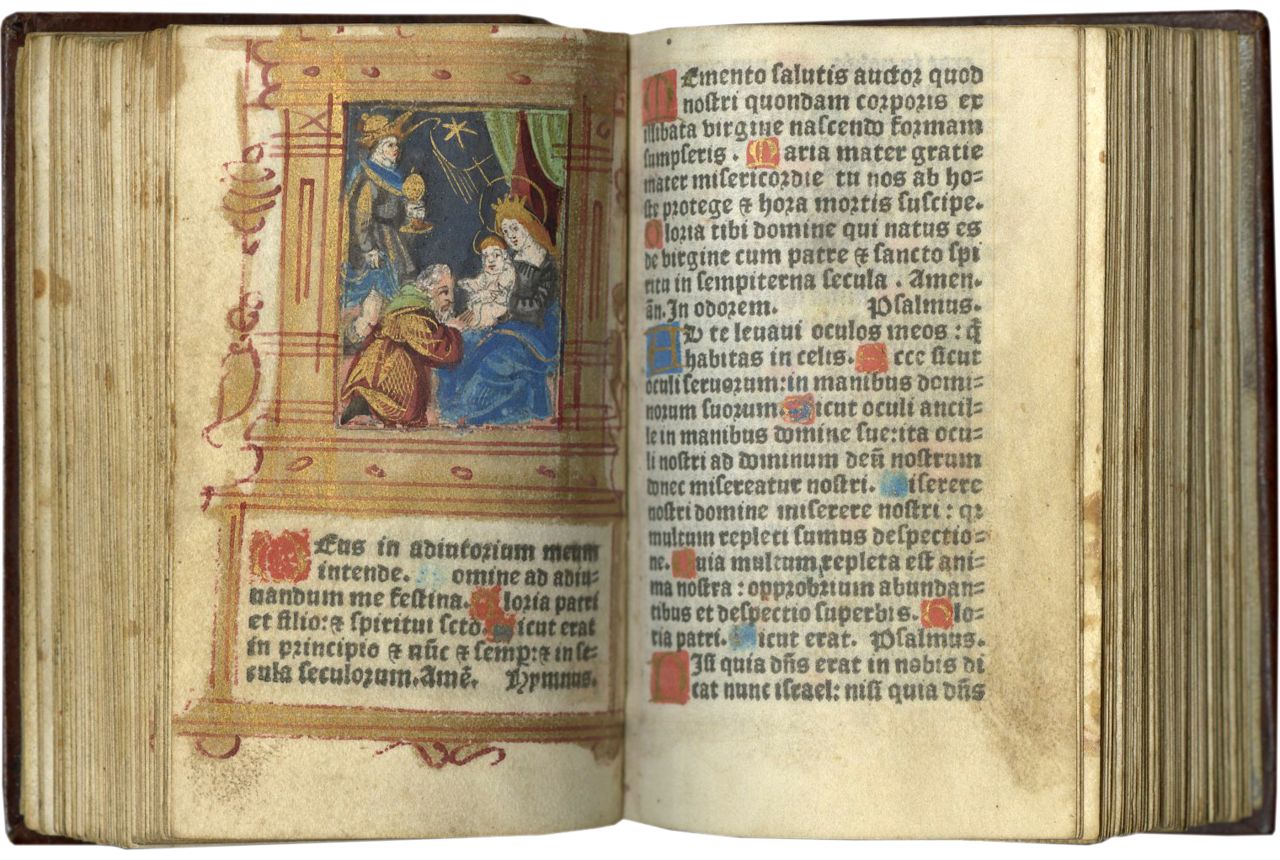 Deus in adiutorium meum
intende. Domine ad adiu-
uandum me festina. Gloria patri
et filio: ⁊ spiritui scto. Sicut erat
in principio ⁊ nūc ⁊ semp: ⁊ in se-
cula seculorum. Amē. Hymnus.
Memento salutis auctor quod
nostri quondam corporis ex
illibata virgine nascendo formam
sumpseris. Maria mater gratie
mater misericordie tu nos ab ho-
ste protege ⁊ hora mortis suscipe.
Gloria tibi domine qui natus es
de virgine cum patre ⁊ sancto spi
ritu in sempiterna secula. Amen.
an̄. In odorem. Psalmus.
AD te leuaui oculos meos: q̄
habitas in celis. Ecce sicut
oculi seruorum: in manibus domi-
norum suorum. Sicut oculi ancil-
le in manibus domine sue: ita ocu-
li nostri ad dominum deū nostrum
donec misereatur nostri. Miserere
nostri domine miserere nostri: qꝛ
multum repleti sumus despectio-
ne. Quia multum repleta est ani-
ma nostra: opprobrium abundan-
tibus et despectio superbis. Glo-
ria patri. Sicut erat. Psalmus.
NIsi quia dn̄s erat in nobis di
cat nunc israel: nisi quia dn̄s